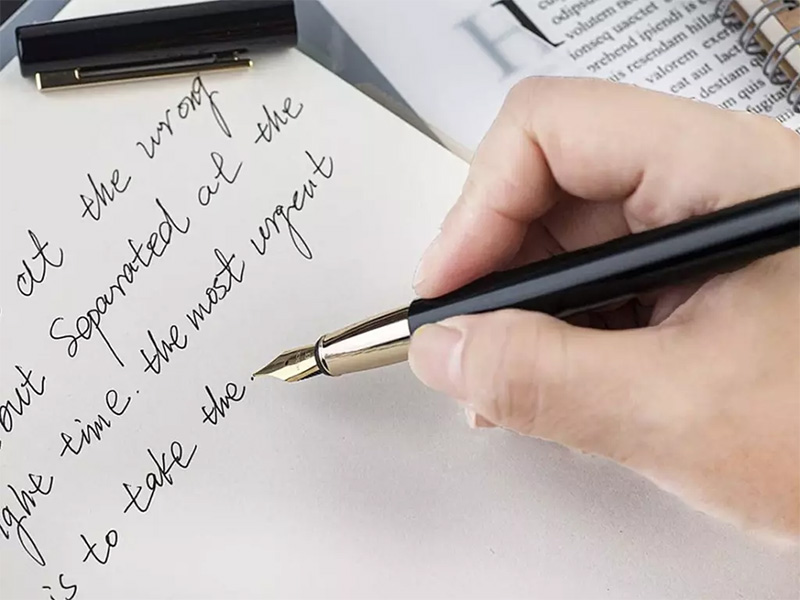 at the wrong
but Separated at the
ight time. the most urgent
is to take the.
H
odipsti
volutem no
ionseq uaectet
prehend ipiendi is e
quis resendam hilles
valorem exerf
eat aut lact
destiam qu
m quis
fugitat